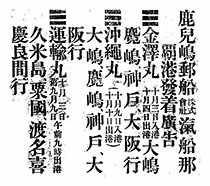 鹿兒嶋郵船株式会社滊船那
覇港發着廣告
金澤丸 十月四日入港 大嶋
鹿嶋神戸大阪行
沖繩丸 十月九日入港 十月十四日出港
大嶋、鹿嶋、神戸、大
阪行
運輸丸 十月三日 午前九時出港
久米島、粟國、渡名喜
慶良間行